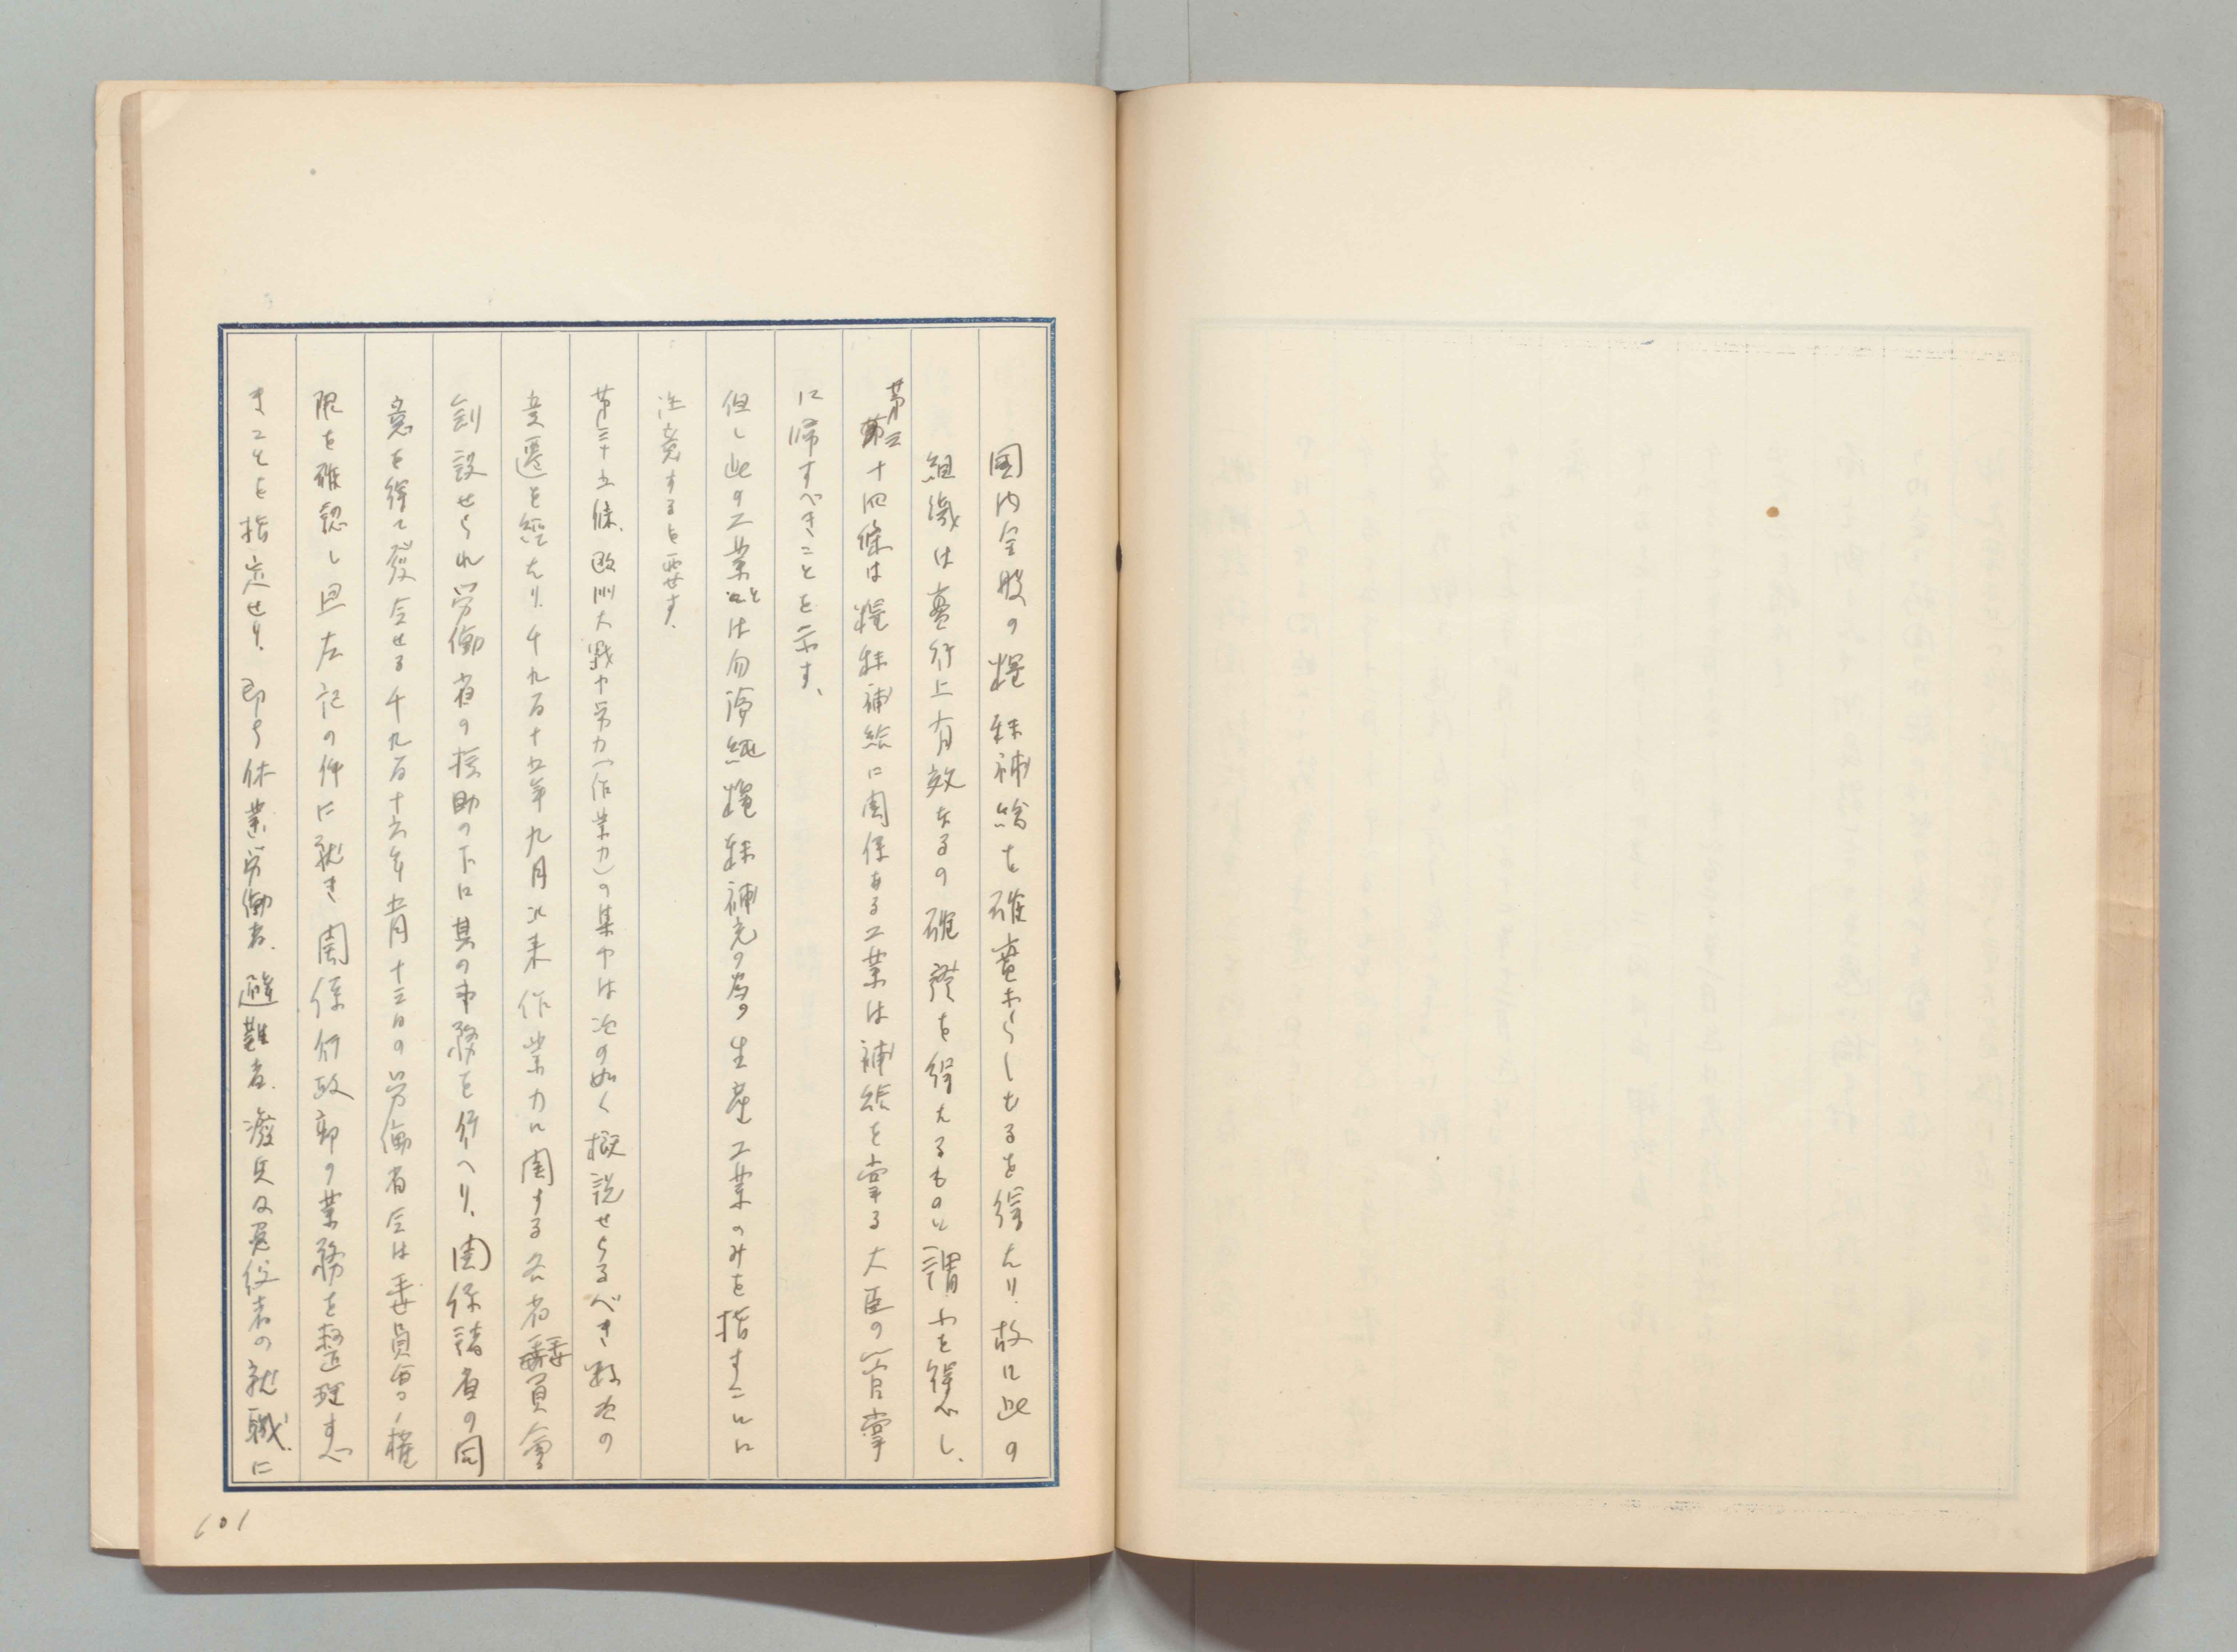 国内全般の糧秣補給を確實ならしむるを得たり.故に此の
組織は實行上有效なるの確證を得たるものと謂ふを得べし、
第三十四條は糧秣補給に関係ある工業は補給を掌る大臣の管掌
に帰すべきことを示す、
但し此の工業とは勿論純糧秣補充の為の生産工業のみを指すことに
注意するを要す、
第三十五條、欧洲大戦中労力(作業力)の集中は次の如く概説せらるべき数次の
変遷を經たり.千九百十五年九月以来作業力に関する各省委員會
創設せられ労働省の援助の下に其の事務を行へり、関係諸省の同
意を得て發令せる千九百十六年五月十三日の労働省令は委員會ノ權
限を確認し且左記の件に就き関係行政部の業務を整理すべ
きことを指定せり、即ち休業労働者、避難者、癈兵及免役者の就職に
101